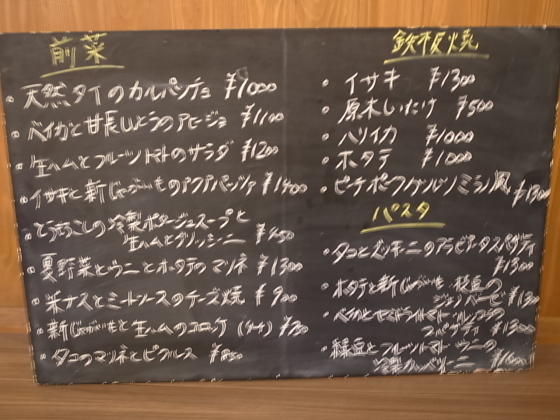 前菜
・天然タイのカルパッチョ ¥1000
・ベイカと甘長とうのアヒージョ ¥1100
・生ハムとフルーツトマトのサラダ ¥1200
・イサキと新じゃがいものアクアパッツァ ¥1400
・とうもろこしの冷製ポタージュスープと
生ハムとグリッシーニ ¥450
・夏野菜とウニとホタテのマリネ ¥1300
・米ナスとミートソースのチーズ焼 ¥900
・新じゃがいもと生ハムのコロッケ
・タコのマリネとピクルス ¥850
鉄板焼
・イサキ ¥1300
・原木しいたけ ¥500
・ハリイカ ¥1000
・ホタテ ¥1000
・ビーフポークゲンコツミラノ風 ¥1300
パスタ
・タコとズッキーニのアラビアータスパゲティ
¥1300
・ホタテと新じゃがいも 枝豆の
ジェノベーゼ ¥1300
・ベイカと
スパゲティ ¥1300
・緑豆とフルーツトマト ウニの
冷製カッペリーニ